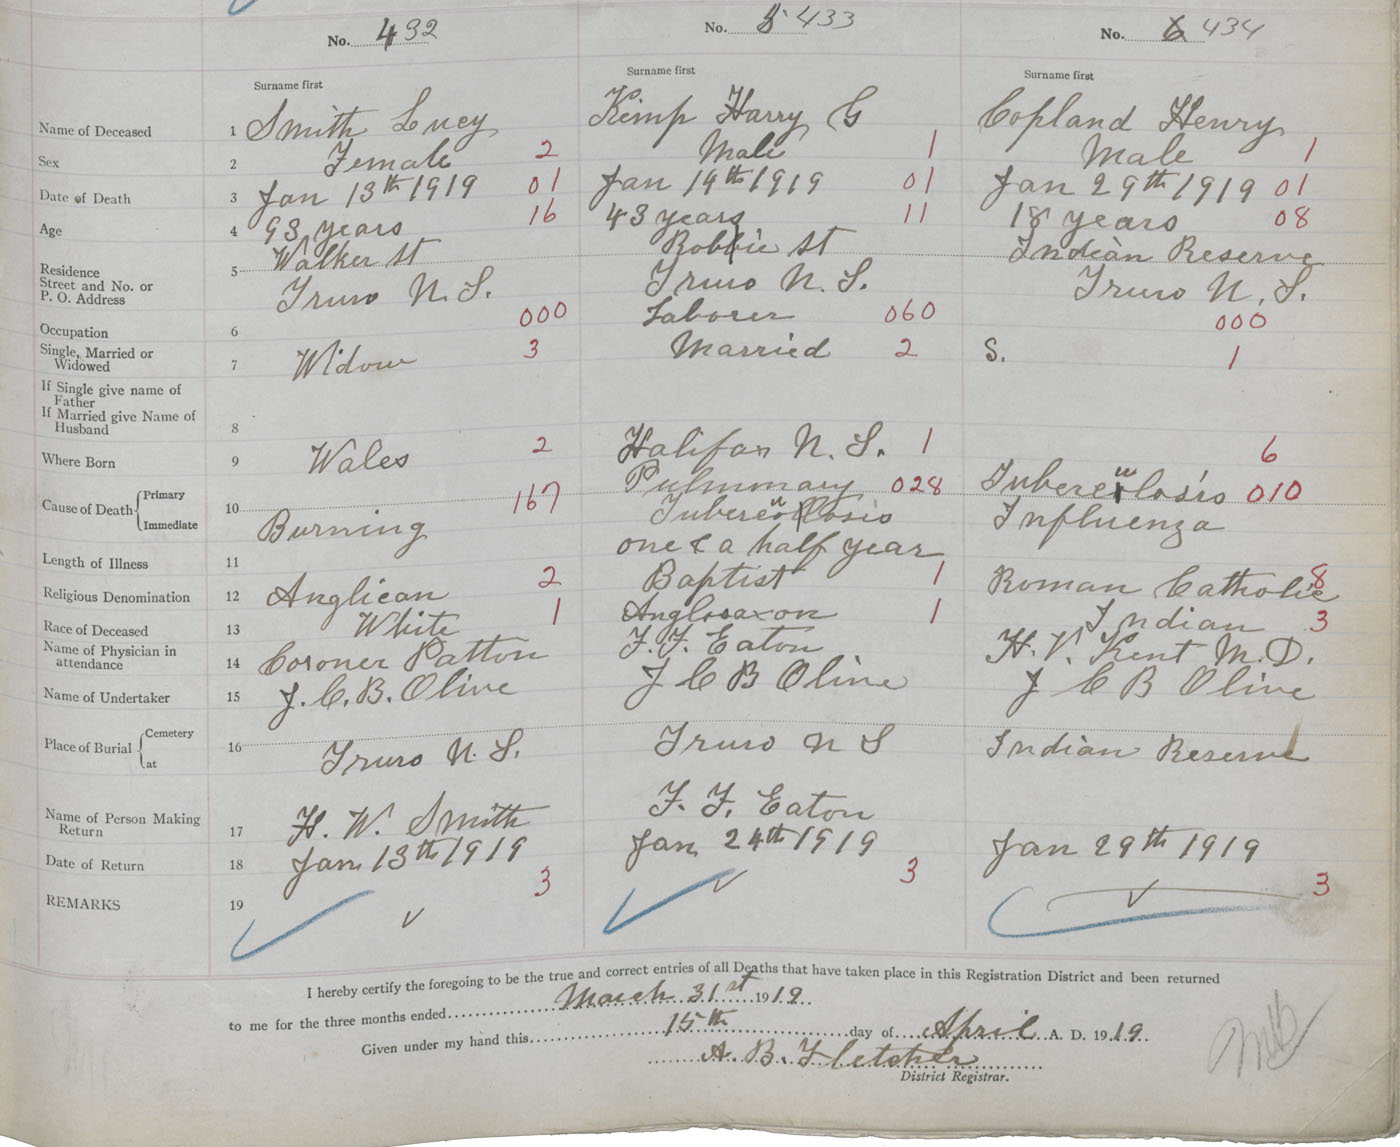 No. 4 432 No. 5 433 No. 6 434
Surname first Surname first Surname first
Name of Deceased 1 Smith Lucy Kemp Harry G Copland Henry
Sex 2 Female 2 Male 1 Male 1
Date of Death 3 Jan 13th 1919 01 Jan 19th 1919 01 Jan 29th 1919 01
Age 4 93 years 16 43 years 11 18 years 08
Residence
Street and No. or
P. O. Address
5 Walker St Robbie St Indian Reserve
Truro N.S. Truro N.S. Truro N.S.
Occupation 6 000 Laborer 060 000
Single, Married or
Widowed 7 Widow 3 Married 2 S. 1
If Single give name of
Father
If Married give Name of
Husband 8
Where Born 9 Wales 2 Halifax N.S. 1 6
Cause of Death Primary 10 167 Pulmonary 028 Tuberculosis 010
Immediate Burning Tuberculosis Influenza
Length of Illness 11 one & a half year
Religious Denomination 12 Anglican 2 Baptist 1 Roman Catholic 8
Race of Deceased 13 White 1 Anglosaxon 1 Indian 3
Name of Physician in
attendance 14 Coroner Patton F. F. Eaton H. V. Kent M.D.
Name of Undertaker 15 J. C. B. Olive J C B Olive J C B Olive
Place of Burial Cemetery
at 16 Truro N.S. Truro N S Indian Reserve
Name of Person Making
Return 17 H. W. Smith F. F. Eaton
Date of Return 18 Jan 13th 1919 Jan 24th 1919 Jan 29th 1919
REMARKS 19 3 3 3
I hereby certify the foregoing to be the true and correct entries of all Deaths that have taken place in this Registration District and been returned
to me for the three months ended March 31st 1919.
Given under my hand this 15th day of April A. D. 1919.
A. B. Fletcher
District Registrar.